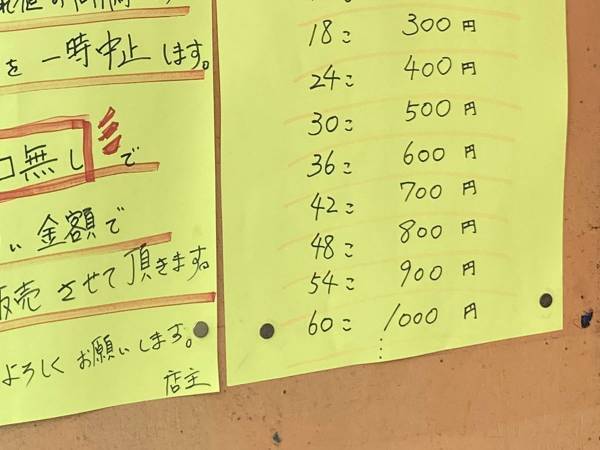 を一時中止します。
無しで
い金額で
販売させて頂きます。
よろしくお願いします。
店主
18こ 300円
24こ 400円
30こ 500円
36こ 600円
42こ 700円
48こ 800円
54こ 900円
60こ 1000円
⋮